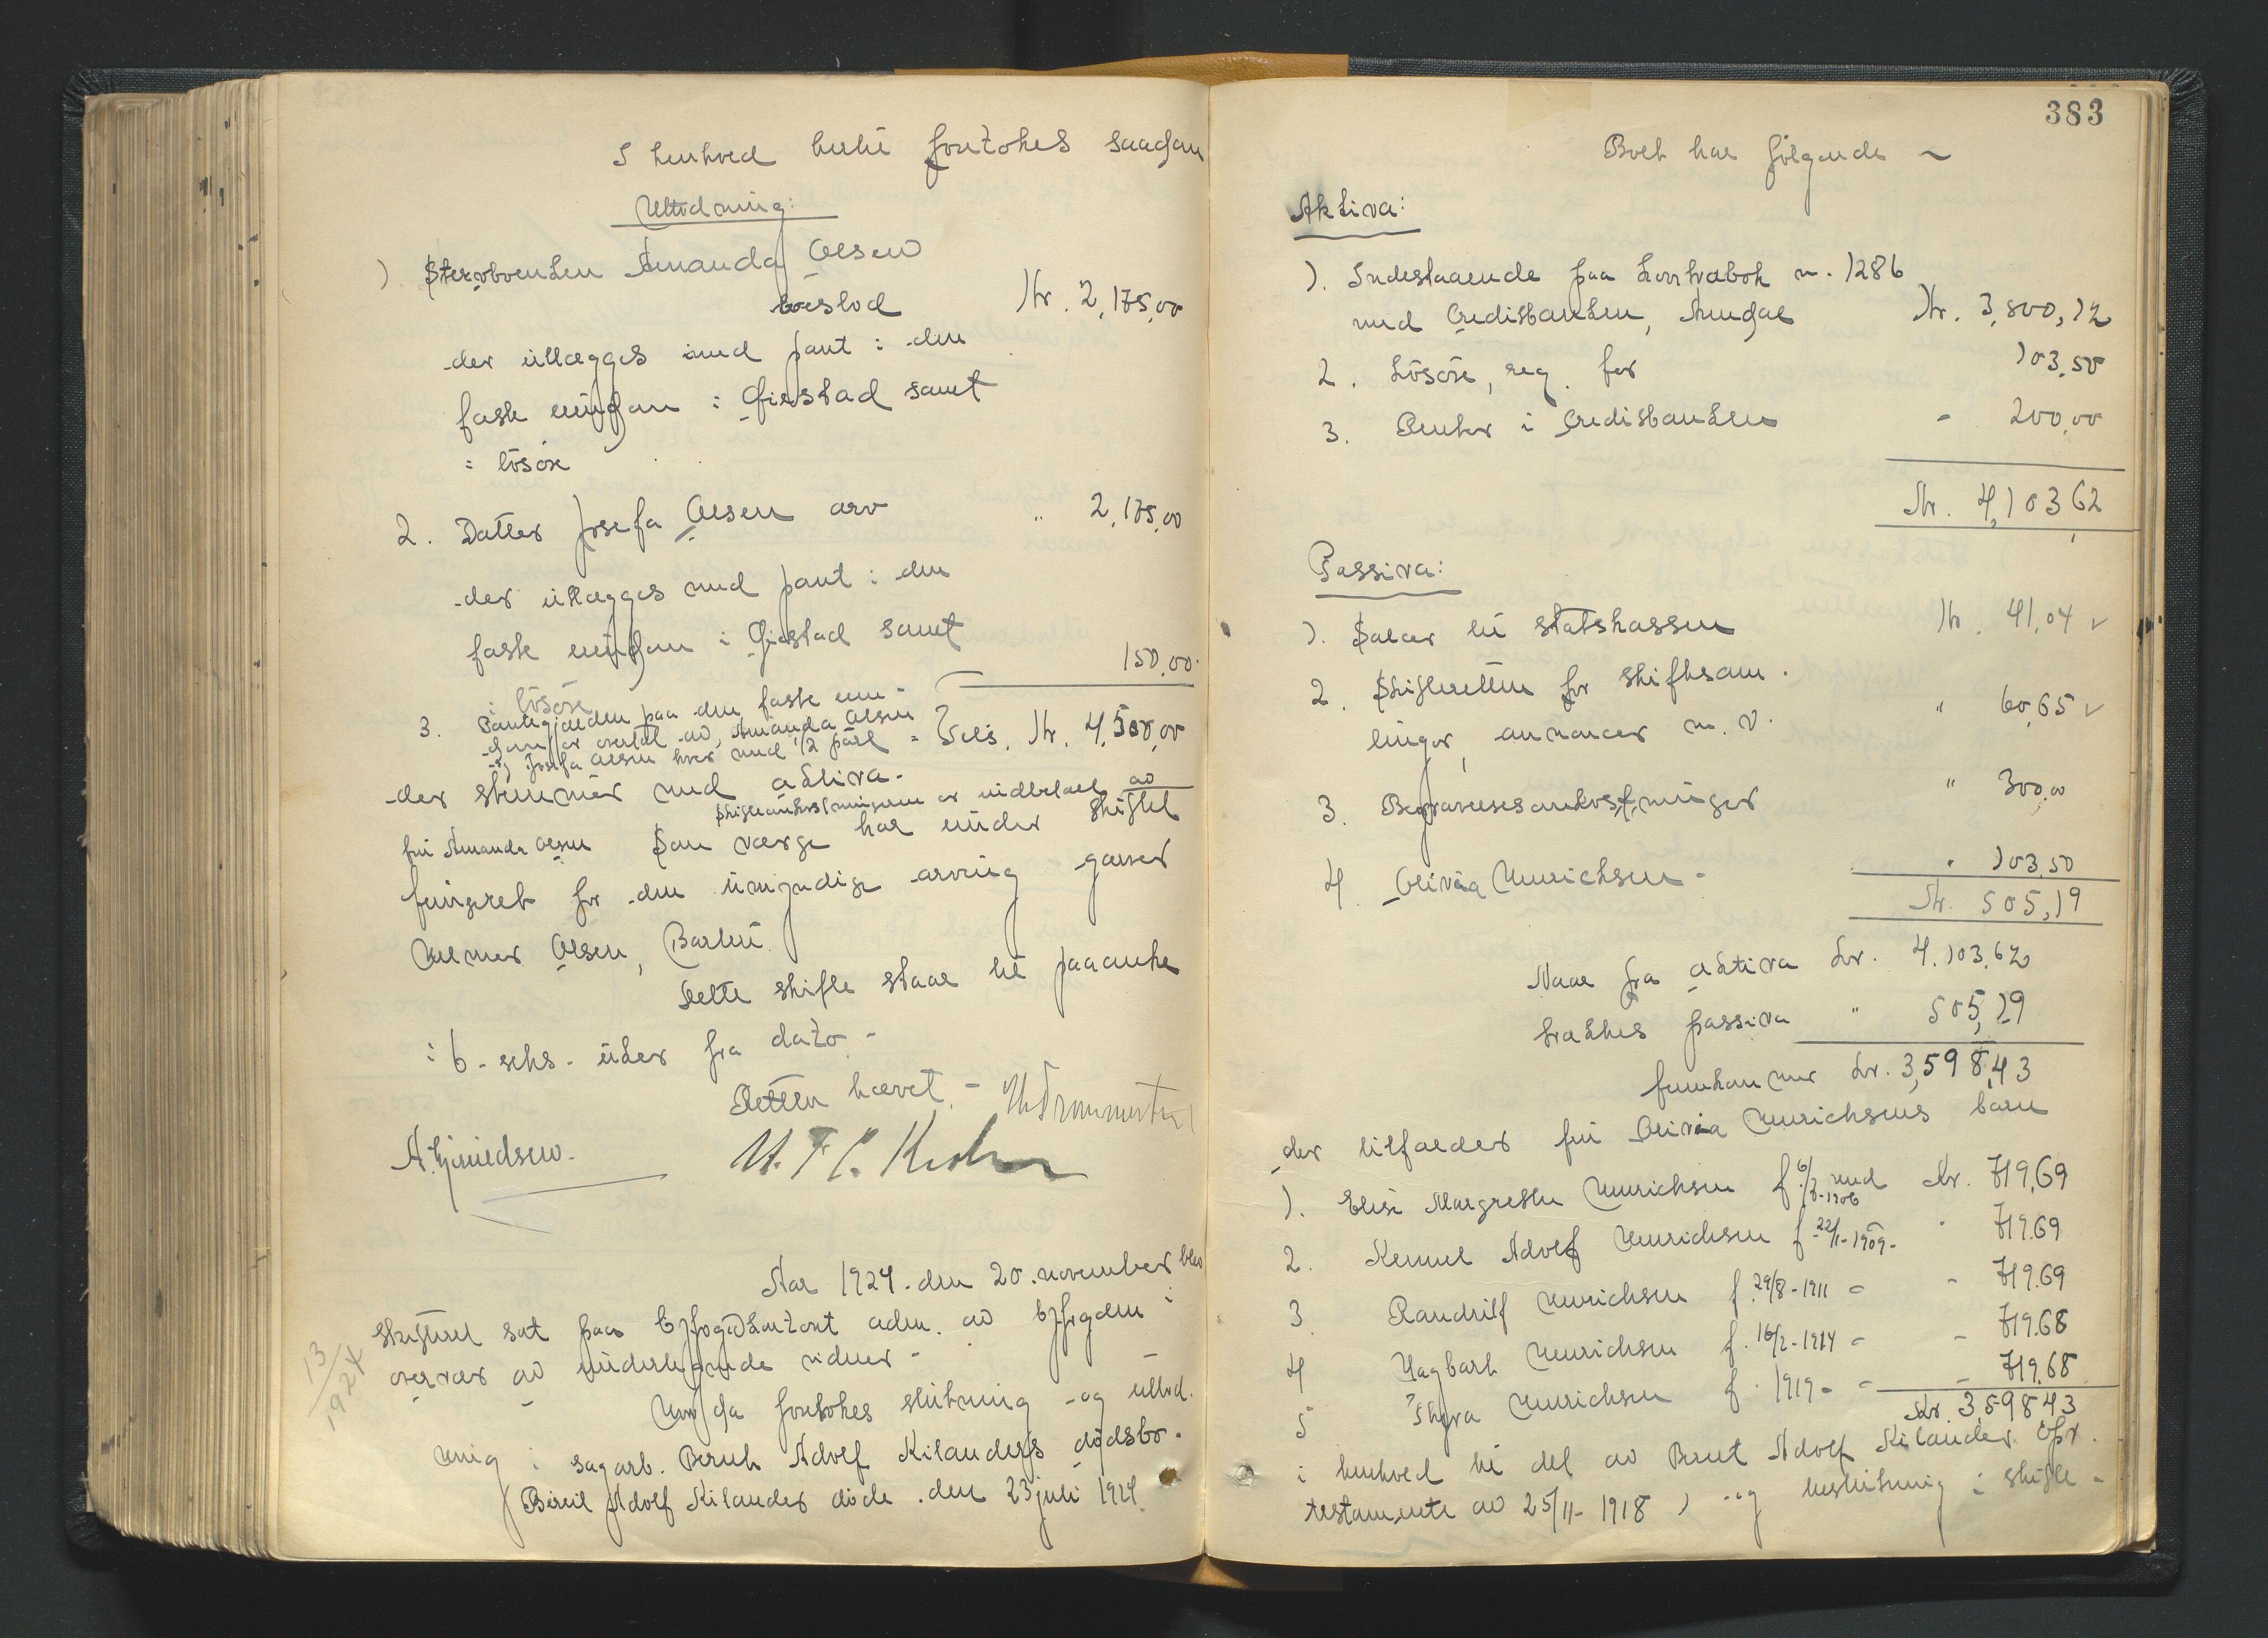 I henhold hertil foretokes saadan
Utlodning:
1. Stervboenken Amanda Olsen
boeslod kr. 2,175,00
der utlægges med pant i den
faste eiendom i Gjestad samt
i løsøre
2. Datter Josefa Olsen arv " 2,175,00
der utlægges med pant i den
faste eiendom i Gjestad samt
i løsøre 150,00
3. Pantegjælden paa den faste eien-
dom er overtat av Amanda Olsen
og Josefa Olsen hver med 1/2 part = Tils. kr. 4,500,00
der stemmer med aktiva.
Skifteomkostningerne er indbetalt av
fru Amanda Olsen Som værge har under skiftet
fungeret for den umyndige arving
Olsen, Barbu.
Dette skifte staar til paaanke
i 6 - seks - uker fra dato -
Retten hævet. -
Aar 1924 den 20. november blev
skifteret sat paa byfogdkontoret adm. av byfogden i
overvær av undertegnede vidner -
13/1924
Hvorda foretokes slutning og utlod-
ning i sagarb. Bernt Adolf Kilanders dødsbo.
Bernt Adolf Kilander døde den 23 juli 1924.
383
Boet har følgende ~
Aktiva:
1. Indestaaende paa kontrabok nr. 1286
med Creditbanken, Arendal kr. 3,800,12
2. Løsøre, reg. for 103,50
3. Renter i Creditbanken - 200,00
Kr. 4,103,62
Passiva:
1. Salær til statskassen kr. 41,04
2. Skifteretten for skiftesam-
linger, annoncer m. v. " 60,65
3. Begravelsesomkostninger " 300,00
4. Olivia Henrichsen - " 103,50
Kr. 505,19
Naar fra aktiva kr. 4.103,62
trækkes passiva " 505,19
fremkommer kr. 3,598,43
der tilfalder fru Olivia Henrichsens barn
1. Elise Margrethe Henrichsen f. 6/7-1906 med kr. 719,69
2. Adolf Henrichsen f. 22/1-1909 - " 719.69
3. Randulf Henrichsen f. 29/8-1911 - - 719.69
4. Hagbart Henrichsen f. 16/2-1914 - - 719.68
5. Thyra Henrichsen f. 1919 - - - 719.68
Kr. 3,598,43
i henhold til det av Bernt Adolf Kilander opr.
testamente av 25/11-1918 og beslutning i skifte-